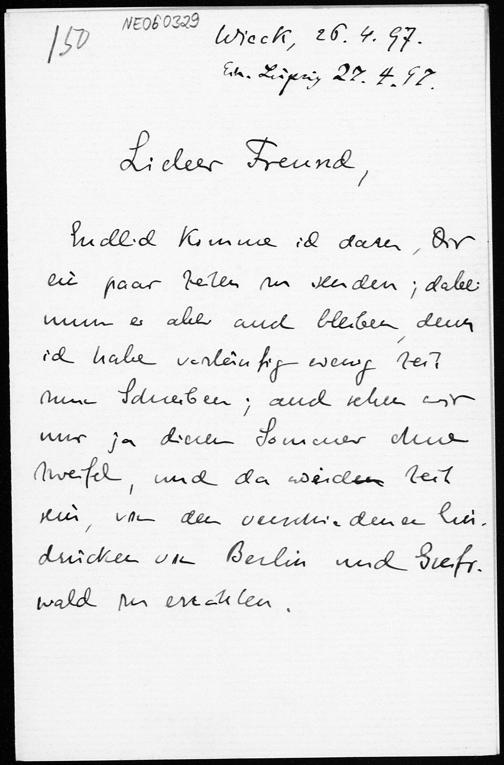 150
NE060329
Wieck, 26. 4. 97.
Erh. Leipzig 27. 4. 97.
Lieber Freund,
Endlich komme ich dazu, Dir
ein paar Zeilen zu senden; dabei
muss es aber auch bleiben, denn
ich habe vorläufig wenig Zeit
zum Schreiben; auch sehen wir
uns ja diesen Sommer ohne
Zweifel, und da wird Zeit
sein, von den verschiedenen Ein-
drücken von Berlin und Greifs-
wald zu erzählen.